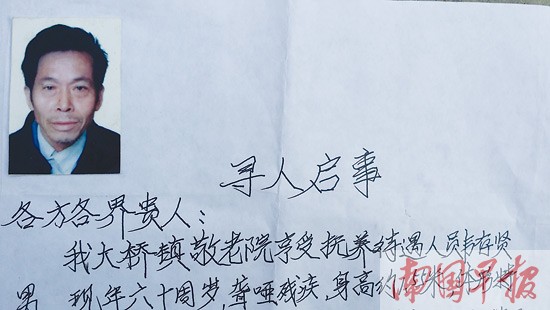 寻人启事
各方各界贵人：
我大桥镇敬老院享受抚养待遇人员韦存贤
男 现年六十周岁，聋哑残疾，身高约1.5米
南国早报